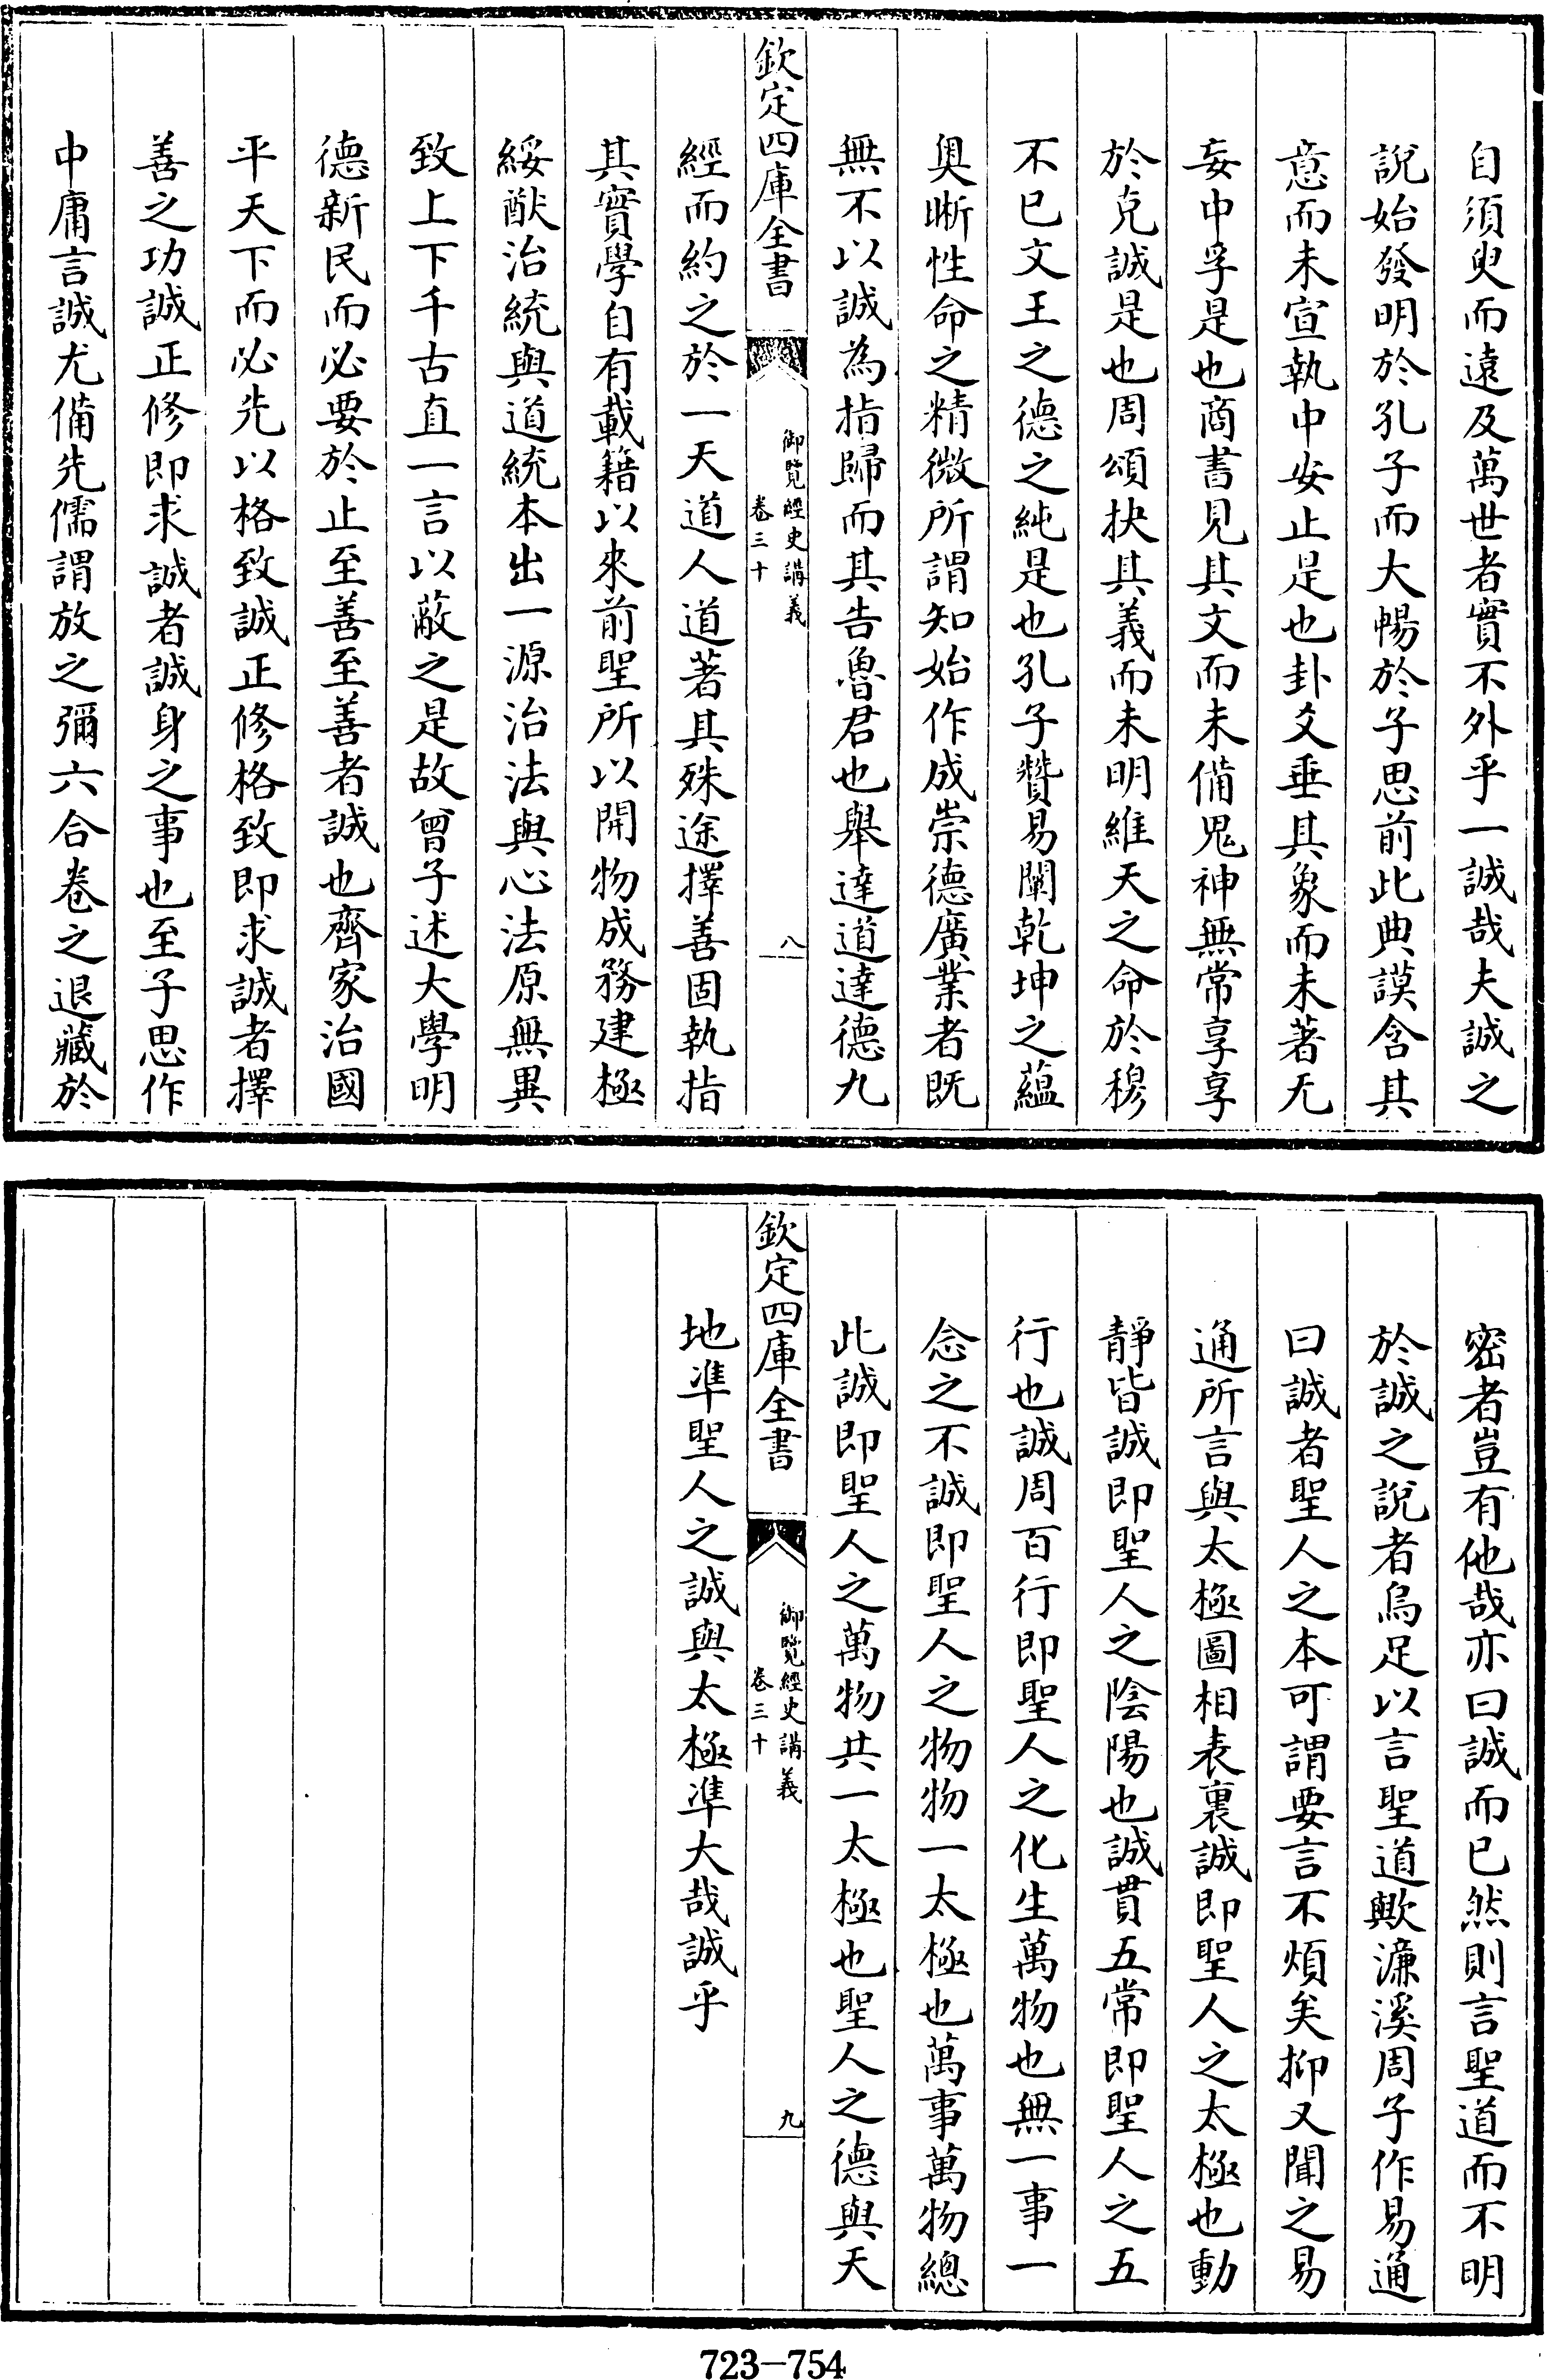 自須臾而遠及萬世者實不外乎一誠哉夫誠之
說始發明於孔子而大暢於子思前此典謨含其
意而未宣執中安止是也卦爻垂其象而未著无
妄中孚是也商書見其文而未備鬼神無常享享
於克誠是也周頌抉其義而未明維天之命於穆
不已文王之德之純是也孔子贊易闡乾坤之蘊
奥晰性命之精微所謂知始作成崇德廣業者既
無不以誠為指歸而其告魯君也舉達道達德九
欽定四庫全書
御覽經史講義
卷三十
八
經而約之於一天道人道著其殊途擇善固執指
其實學自有載籍以來前聖所以開物成務建極
綏猷治統與道統本出一源治法與心法原無異
致上下千古直一言以蔽之是故曾子述大學明
德新民而必要於止至善至善者誠也齊家治國
平天下而必先以格致誠正修格致即求誠者擇
善之功誠正修即求誠者誠身之事也至子思作
中庸言誠尤備先儒謂放之彌六合卷之退藏於
密者豈有他哉亦曰誠而已然則言聖道而不明
於誠之說者烏足以言聖道歟濂溪周子作易通
曰誠者聖人之本可謂要言不煩矣抑又聞之易
通所言與太極圖相表裏誠即聖人之太極也動
靜皆誠即聖人之陰陽也誠貫五常即聖人之五
行也誠周百行即聖人之化生萬物也無一事一
念之不誠即聖人之物物一太極也萬事萬物總
此誠即聖人之萬物共一太極也聖人之德與天
欽定四庫全書
御覽經史講義
卷三十
九
地準聖人之誠與太極準大哉誠乎
723-754